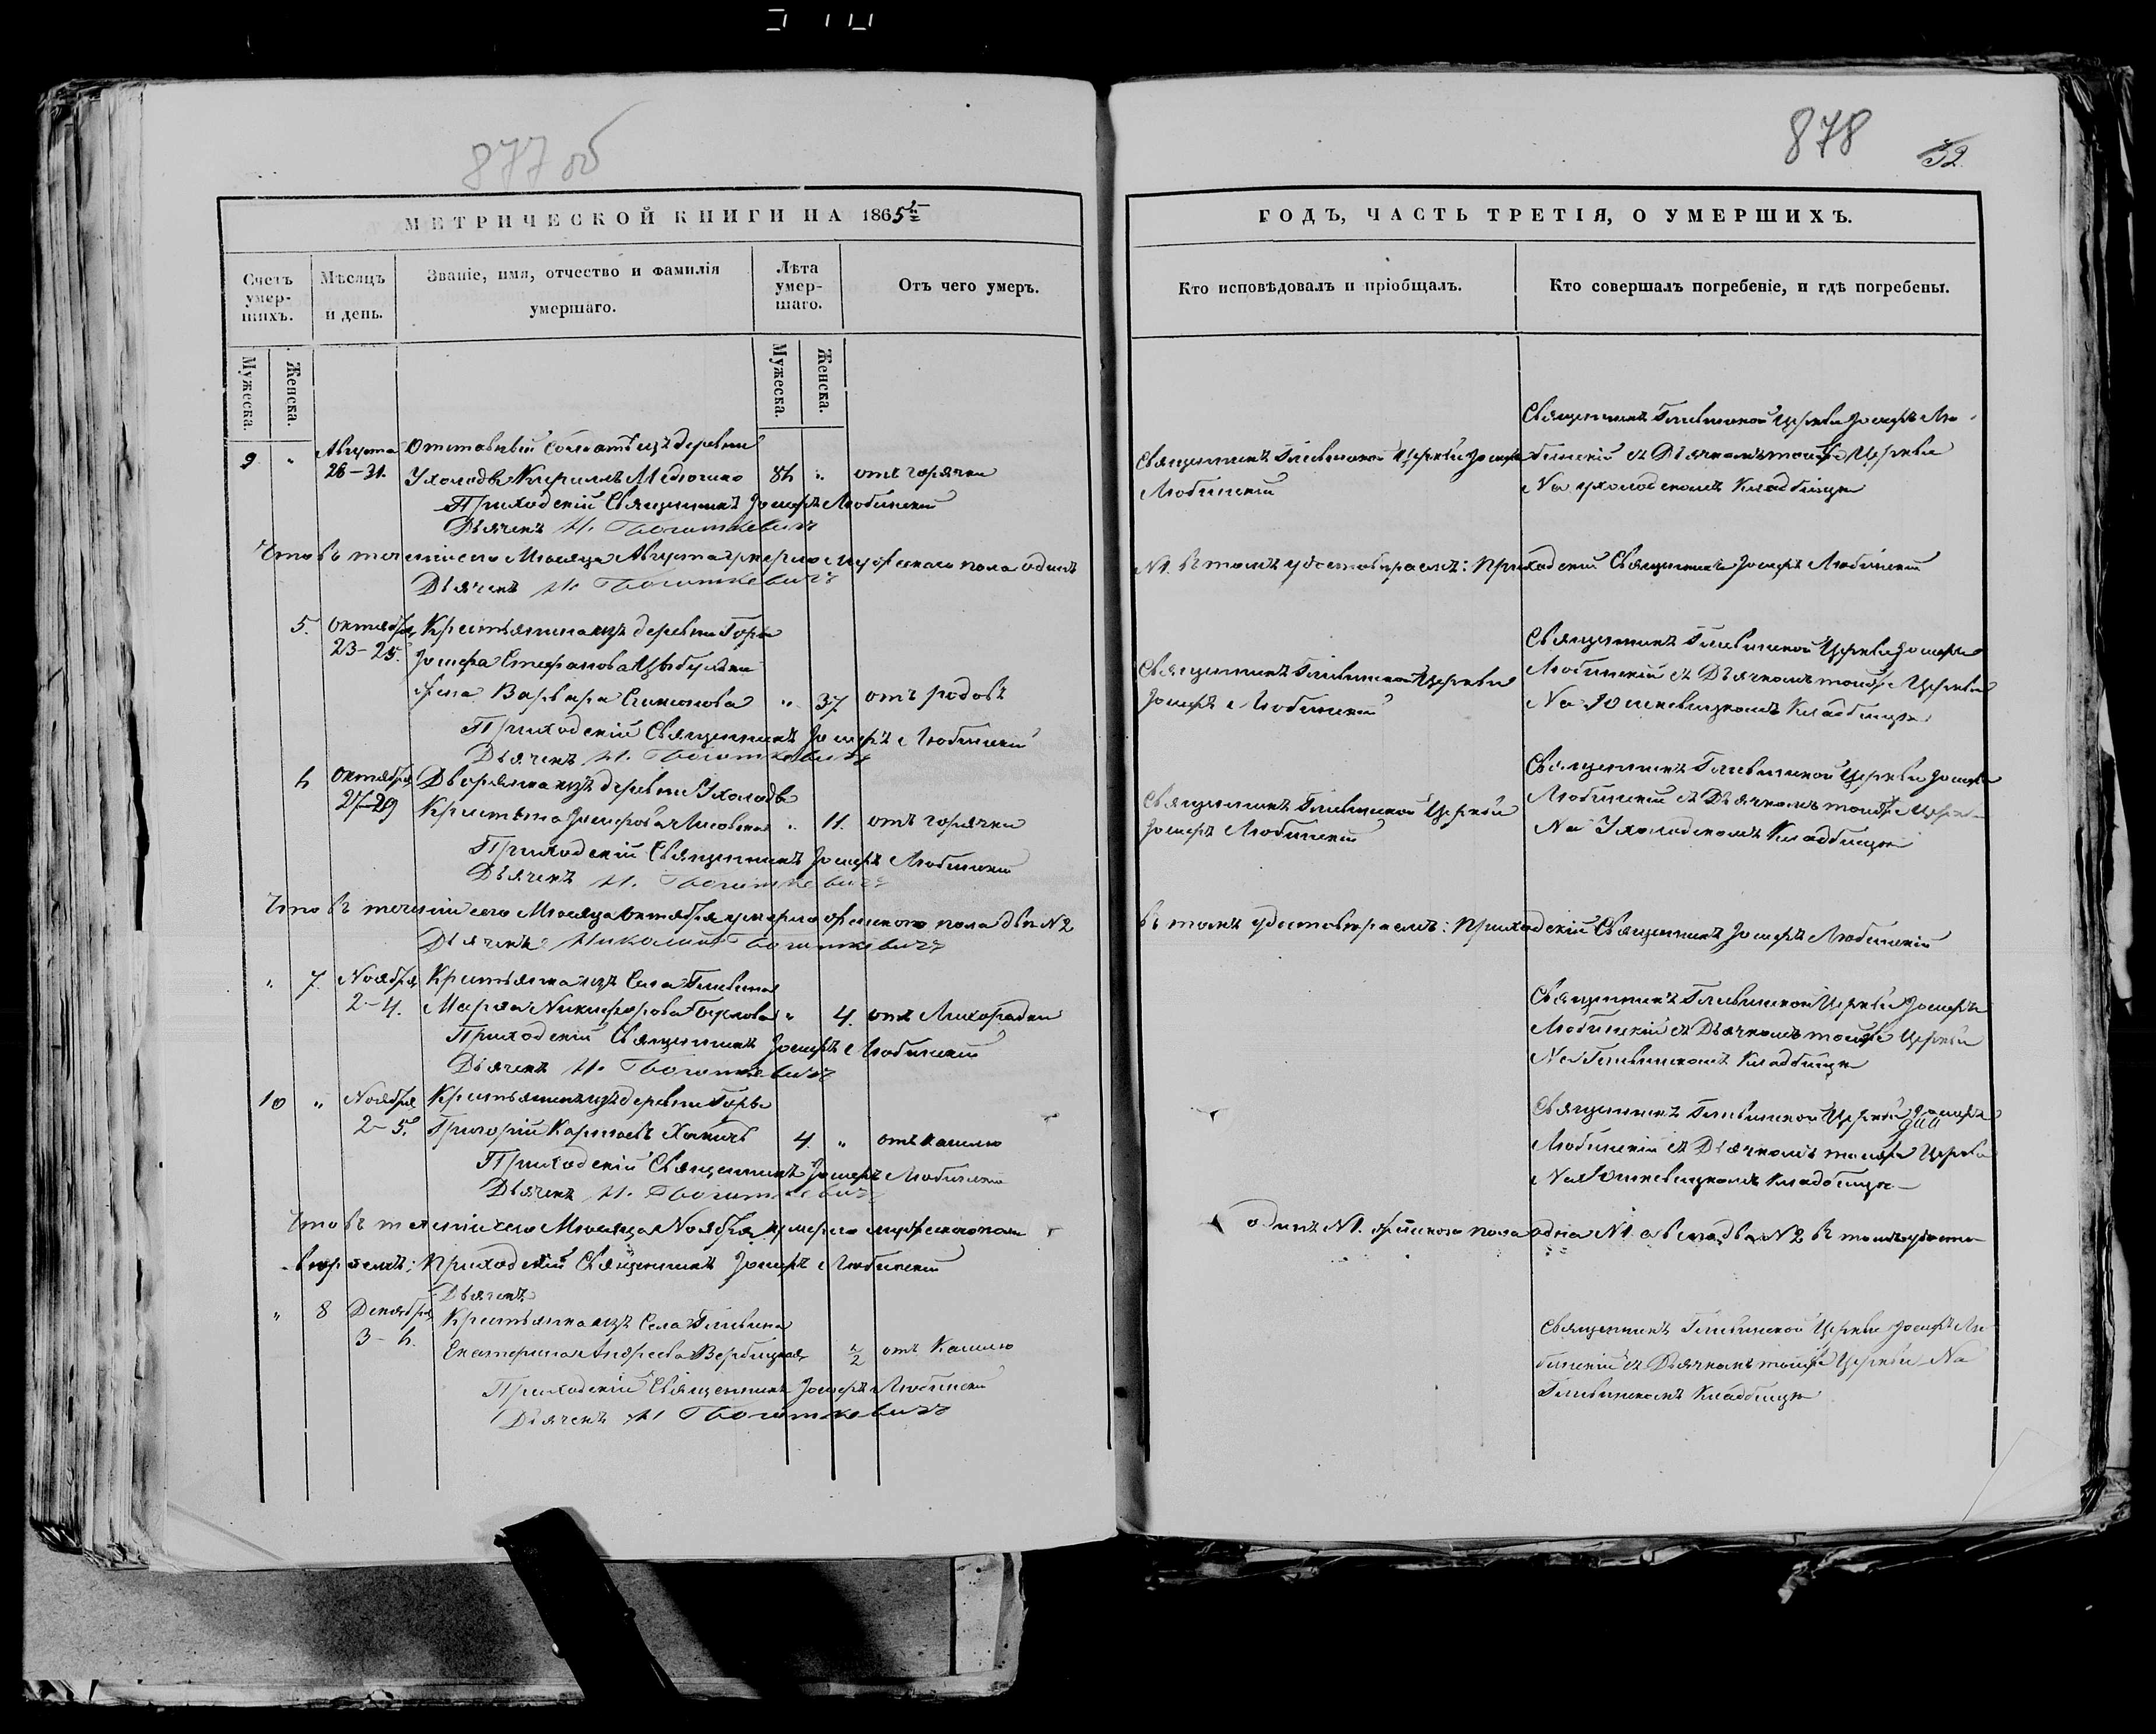 877 об
МЕТРИЧЕСКОЙ КНИГИ НА 1865
Счетъ умер-шихъ.
Мѣсяцъ и день.
Званіе, имя, отчество и фамилія умершаго.
Лѣта умер-шаго.
Отъ чего умеръ.
Мужеска.
Женска.
Мужеска.
Женска.
9 " Августа Отставный Солдатъ изъ деревни
28-31. Ухолодъ Кириллъ " отъ горячки
Приходскій Священникъ Іосифъ Любинскій
Дьячекъ Н. Боготкевичъ
Что въ теченіи сего Мѣсяца Августа умерло мужескаго пола одинъ
Дьячекъ Н. Боготкевичъ
5. Октября Крестьянина изъ деревни Горы
23-25. Іосифа Стефанова
жена Варвара Симонова " 37 отъ родовъ
Приходскій Священникъ Іосифъ Любинскій
Дьячекъ Н. Боготкевичъ
6 Октября Дворянка изъ деревни Ухолодъ
27-29 Іосифова " 11. отъ горячки
Приходскій Священникъ Іосифъ Любинскій
Дьячекъ Н. Боготкевичъ
Что въ теченіи сего Мѣсяца Октября умерло женскаго пола двѣ N2
Дьячекъ Николай Боготкевичъ
" 7. Ноября Крестьянка изъ Села Гливина
2-4. Марѳа Никифорова " 4. отъ Лихорадки
Приходскій Священникъ Іосифъ Любинскій
Дьячекъ Н. Боготкевичъ
10 " Ноября Крестьянинъ изъ деревни Горы
2-5. Григорій Карповъ 4. " отъ кашлю
Приходскій Священникъ Іосифъ Любинскій
Дьячекъ Н. Боготкевичъ
Что въ теченіи сего Мѣсяца Ноября умерло мужескаго пола
вѣряемъ: Приходскій Священникъ Іосифъ Любинскій
Дьячекъ
" 8 Декабря Крестьянка изъ Села Гливина
3-6. Екатерина Андреева Вербицкая 1/2 отъ Кашлю
Приходскій Священникъ Іосифъ Любинскій
Дьячекъ Н Боготкевичъ
878
32
ГОДЪ, ЧАСТЬ ТРЕТІЯ, О УМЕРШИХЪ.
Кто исповѣдовалъ и пріобщалъ.
Кто совершалъ погребеніе, и гдѣ погребены.
Священникъ Гливинской Церкви Іосифъ
Любинскій
Священникъ Гливинской Церкви Іосифъ Лю-
бинскій съ Дьячкомъ тойже Церкви
На Ухолодскомъ Кладбищѣ
N1. въ томъ удостовѣряемъ: Приходскій Священникъ Іосифъ Любинскій
Священникъ Гливинской Церкви
Іосифъ Любинскій
Священникъ Гливинской Церкви Іосифъ
Любинскій съ Дьячкомъ тойже Церкви
На Юшкевицкомъ Кладбищѣ
Священникъ Гливинской Церкви
Іосифъ Любинскій
Священникъ Гливинской Церкви Іосифъ
Любинскій съ Дьячкомъ тойже Церкви
На Ухолодскомъ Кладбищѣ
въ томъ удостовѣряемъ: Приходскій Священникъ Іосифъ Любинскій
Священникъ Гливинской Церкви Іосифъ
Любинскій съ Дьячкомъ тойже Церкви
На Гливинскомъ Кладбищѣ
Священникъ Гливинской Церкви Іосифъ
Любинскій съ Дьячкомъ тойже Церкви
На Юшкевицкомъ Кладбищѣ
одинъ N1. женскаго пола одна N1. а всего два N2 въ томъ удосто-
Священникъ Гливинской Церкви Іосифъ Лю-
бинскій съ Дьячкомъ тойже Церкви На
Гливинскомъ Кладбищѣ